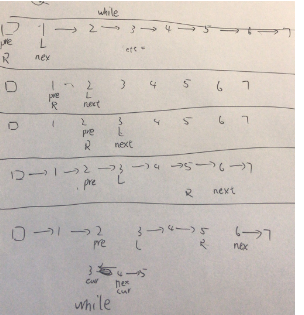 while
1 → 2 → 3 → 4 → 5 → 6 → 7
pre L
R next
1 2 3 4 5 6 7
pre L
R next
0 1 2 3 4 5 6 7
pre L
R next
→ 1 → 2 → 3 → 4 → 5 → 6 → 7
pre L R next
→ 1 → 2 3 → 4 → 5 6 → 7
pre L R next
3 4 → 5
cur nex
cur
while